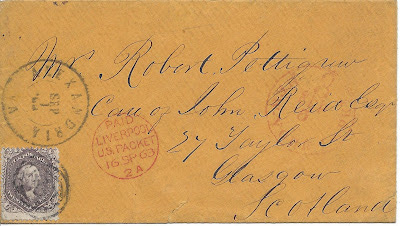 Mr Robert Pettigrew
Care of John Reid Esq
27 Taylor St
Glasgow
Scotland
ALEXANDRIA
SEP
1
VA
PAID
LIVERPOOL
U.S. PACKET
16 SP 63
2A